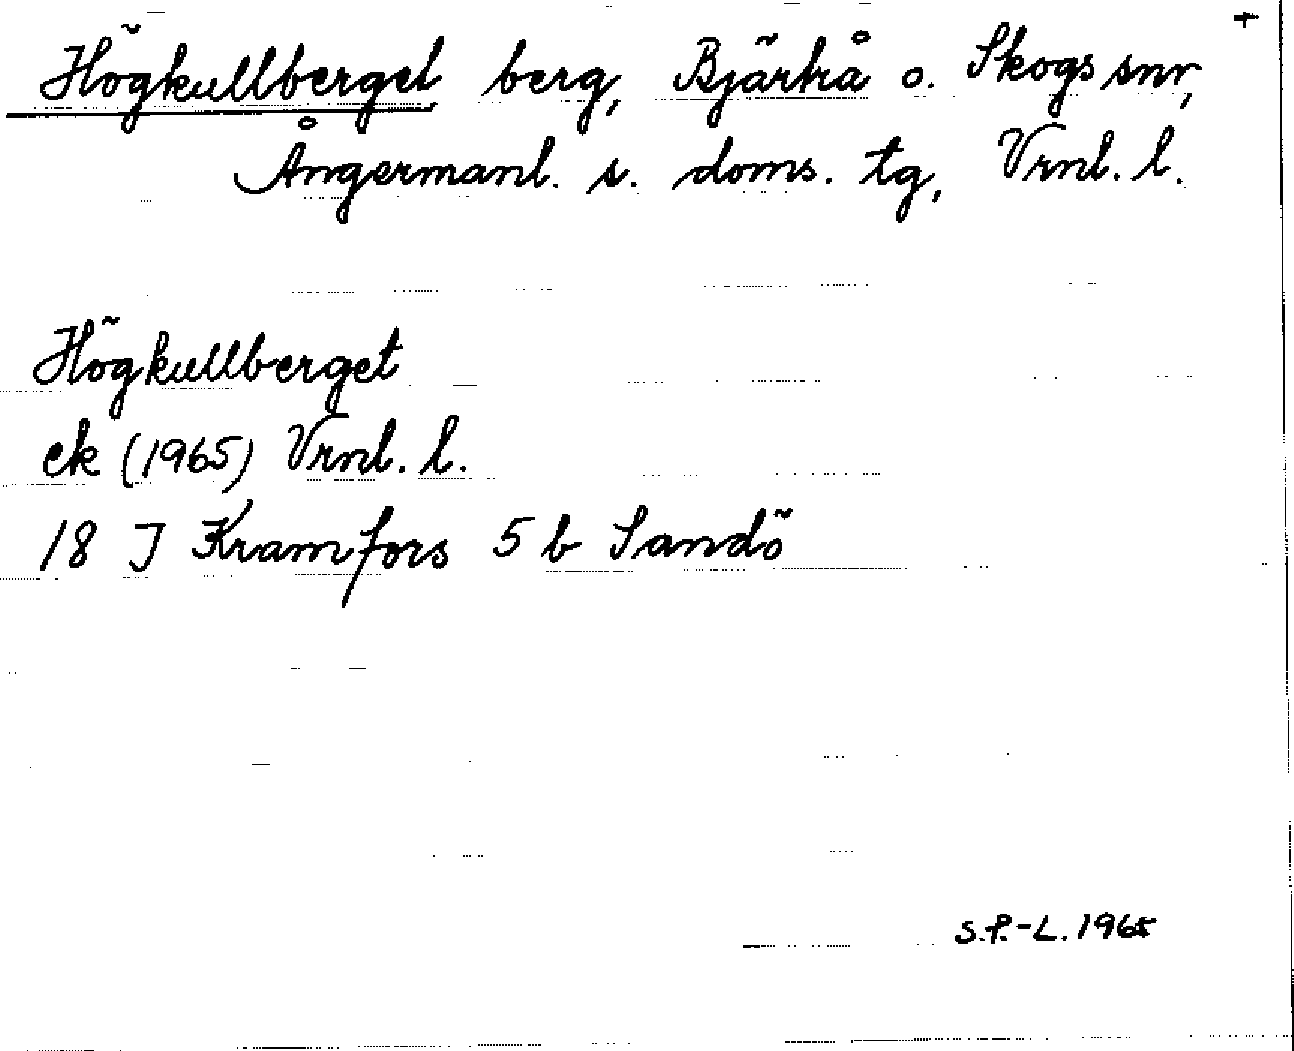 +
Högkullberget berg, Bjärtrå o. Skogs snr,
Ångermanl. s. doms. tg, Vrnl. l.
Högkullberget
ek (1965) Vrnl. l.
18 J Kramfors 5 b Sandö
S.P.-L. 1965